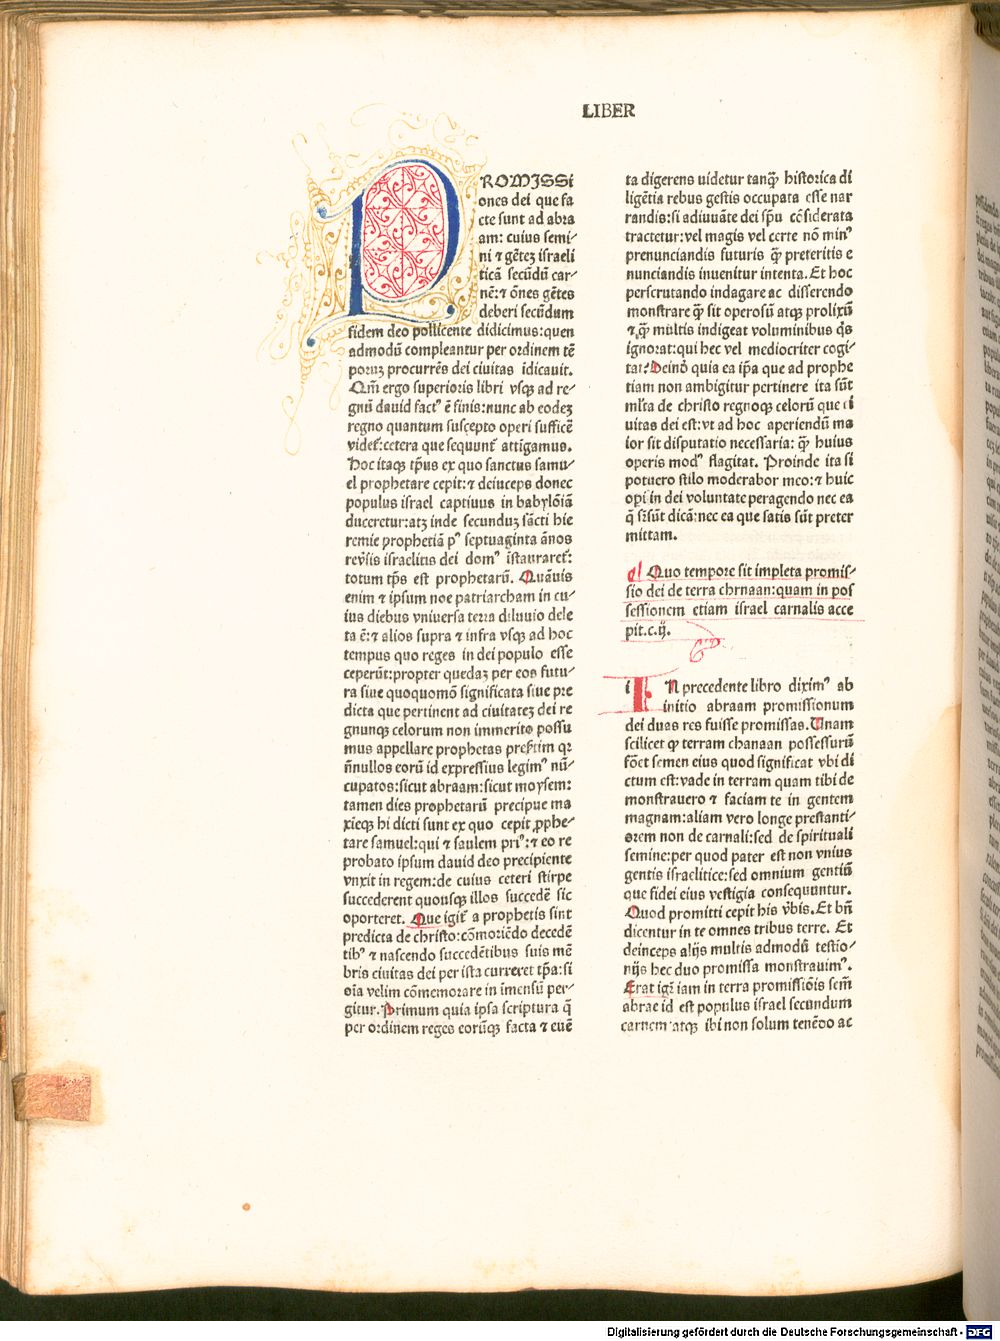 LIBER
PROMISSI
ones dei que fa
cte sunt ad abra
am: cuius semi⸗
ni ⁊ gẽteʒ israeli
ticã secũdũ car⸗
nẽ:⁊ õnes gẽtes
deberi secũdum
fidem deo pollicente didicimus:quen
admodũ compleantur per ordinem tẽ
poruʒ procurrẽs dei ciuitas idicauit.
Qm̃ ergo superioris libri vsqꝫ ad re⸗
gnũ dauid factꝰ ẽ finis:nunc ab eodeʒ
regno quantum suscepto operi sufficẽ
videt᷑:cetera que sequunt᷑ attigamus.
Hoc itaqꝫ tp̃us ex quo sanctus samu⸗
el prophetare cepit:⁊ deinceps donec
populus israel captiuus in babylõiã
duceretur:atqꝫ inde secunduʒ sãcti hie
remie prophetiã pꝰ septuaginta ãnos
reuˀsis israelitis dei domꝰ ĩstauraret᷑:
totum tp̃s est prophetarũ. Quãuis
enim ⁊ ipsum noe patriarcham in cu⸗
ius diebus vniuersa terra diluuio dele
ta ẽ:⁊ alios supra ⁊ infra vsqꝫ ad hoc
tempus quo reges in dei populo esse
ceperũt:propter quedaʒ per eos futu⸗
ra siue quoquomõ significata siue pre
dicta que pertinent ad ciuitateʒ dei re
gnunqꝫ celorum non immerito possu
mus appellare prophetas presˀtim qꝛ
ñnullos eorũ id expressius legimꝰ nũ⸗
cupatos:sicut abraam:sicut moysem:
tamen dies prophetarũ precipue ma
xĩeqꝫ hi dicti sunt ex quo cepit ꝓphe⸗
tare samuel:qui ⁊ saulem priꝰ:⁊ eo re
probato ipsum dauid deo precipiente
vnxit in regem:de cuius ceteri stirpe
succederent quousqꝫ illos succedẽ sic
oporteret. Que igit᷑ a prophetis sint
predicta de christo:cõmoriẽdo decedẽ
tibꝰ ⁊ nascendo succedẽtibus suis mẽ
bris ciuitas dei per ista curreret tp̃a:si
oĩa velim cõmemorare in ĩmensũ per⸗
gitur. Primum quia ipsa scriptura q̃
per ordinem reges eorũqꝫ facta ⁊ euẽ
ta digerens uidetur tanqꝫ̃ historica di
ligẽtia rebus gestis occupata esse nar
randis:si adiuuãte dei sp̃u cõsiderata
tractetur:vel magis vel certe nõ minꝰ
prenunciandis futuris qꝫ̃ preteritis e
nunciandis inuenitur intenta. Et hoc
perscrutando indagare ac disserendo
monstrare qꝫ̃ sit operosũ atqꝫ prolixũ
⁊ qꝫ̃ multis indigeat voluminibus q̃s
ignorat:qui hec vel mediocriter cogi⸗
tat? Deinð quia ea ip̃a que ad prophe
tiam non ambigitur pertinere ita sũt
ml̃ta de christo regnoqꝫ celorũ que ci
uitas dei est:vt ad hoc aperiendũ ma
ior sit disputatio necessaria: qꝫ̃ huius
operis modꝰ flagitat. Proinde ita si
potuero stilo moderabor meo:⁊ huic
opˀi in dei voluntate peragendo nec ea
q̃ sꝛ̃sũt dicã:nec ea que satis sũt preter
mittam.
Quo tempore sit impleta promis⸗
sio dei de terra chrnaan:quam in pos
sessionem etiam israel carnalis acce
pit.c.ij.
iIN precedente libro diximꝰ ab
initio abraam promissionum
dei duas res fuisse promissas. Unam
scilicet qꝫ terram chanaan possessurũ
foẽt semen eius quod significat᷑ vbi di
ctum est:vade in terram quam tibi de
monstrauero ⁊ faciam te in gentem
magnam:aliam vero longe prestanti⸗
orem non de carnali:sed de spirituali
semine:per quod pater est non vnius
gentis israelitice:sed omnium gentiũ
que fidei eius vestigia consequuntur.
Quod promitti cepit his vˀbis. Et bñ
dicentur in te omnes tribus terre. Et
deinceps alijs multis admodũ testio⸗
nijs hec duo promissa monstrauimꝰ.
Erat igit᷑ iam in terra promissiõis sem̃
abrae id est populus israel secundum
carnem atqꝫ ibi non solum tenẽdo ac
Digitalisierung gefördert durch die Deutsche Forschungsgemeinschaft - DFG